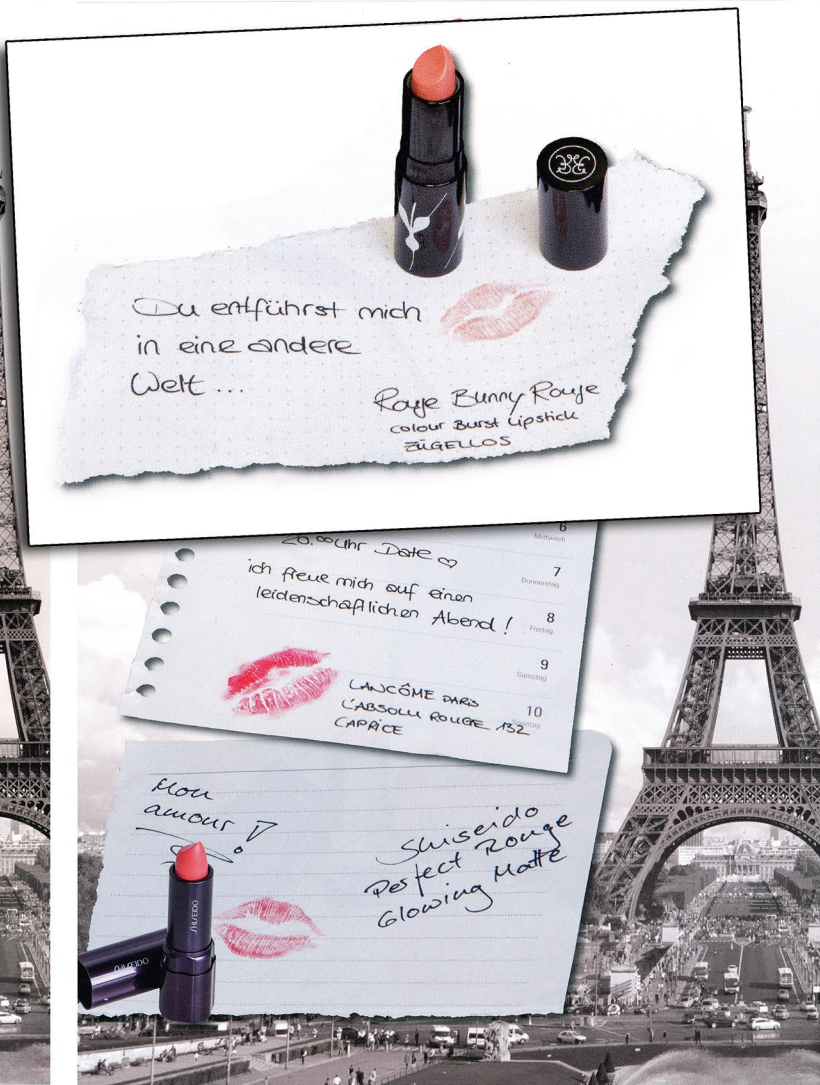 Du entführst mich
in eine andere
Welt ...
Rouge Bunny Rouge
colour Burst Lipstick
ZÜGELLOS
20.00 Uhr Date ♡
ich freue mich auf einen
leidenschaftlichen Abend!
6
Mittwoch
7
Donnerstag
8
Freitag
9
Samstag
10
Sonntag
LANCÔME PARIS
L'ABSOLU ROUGE 132
CAPRICE
Mon
amour!
Shiseido
Perfect Rouge
Glowing Matte
SHISEIDO
SHISEIDO